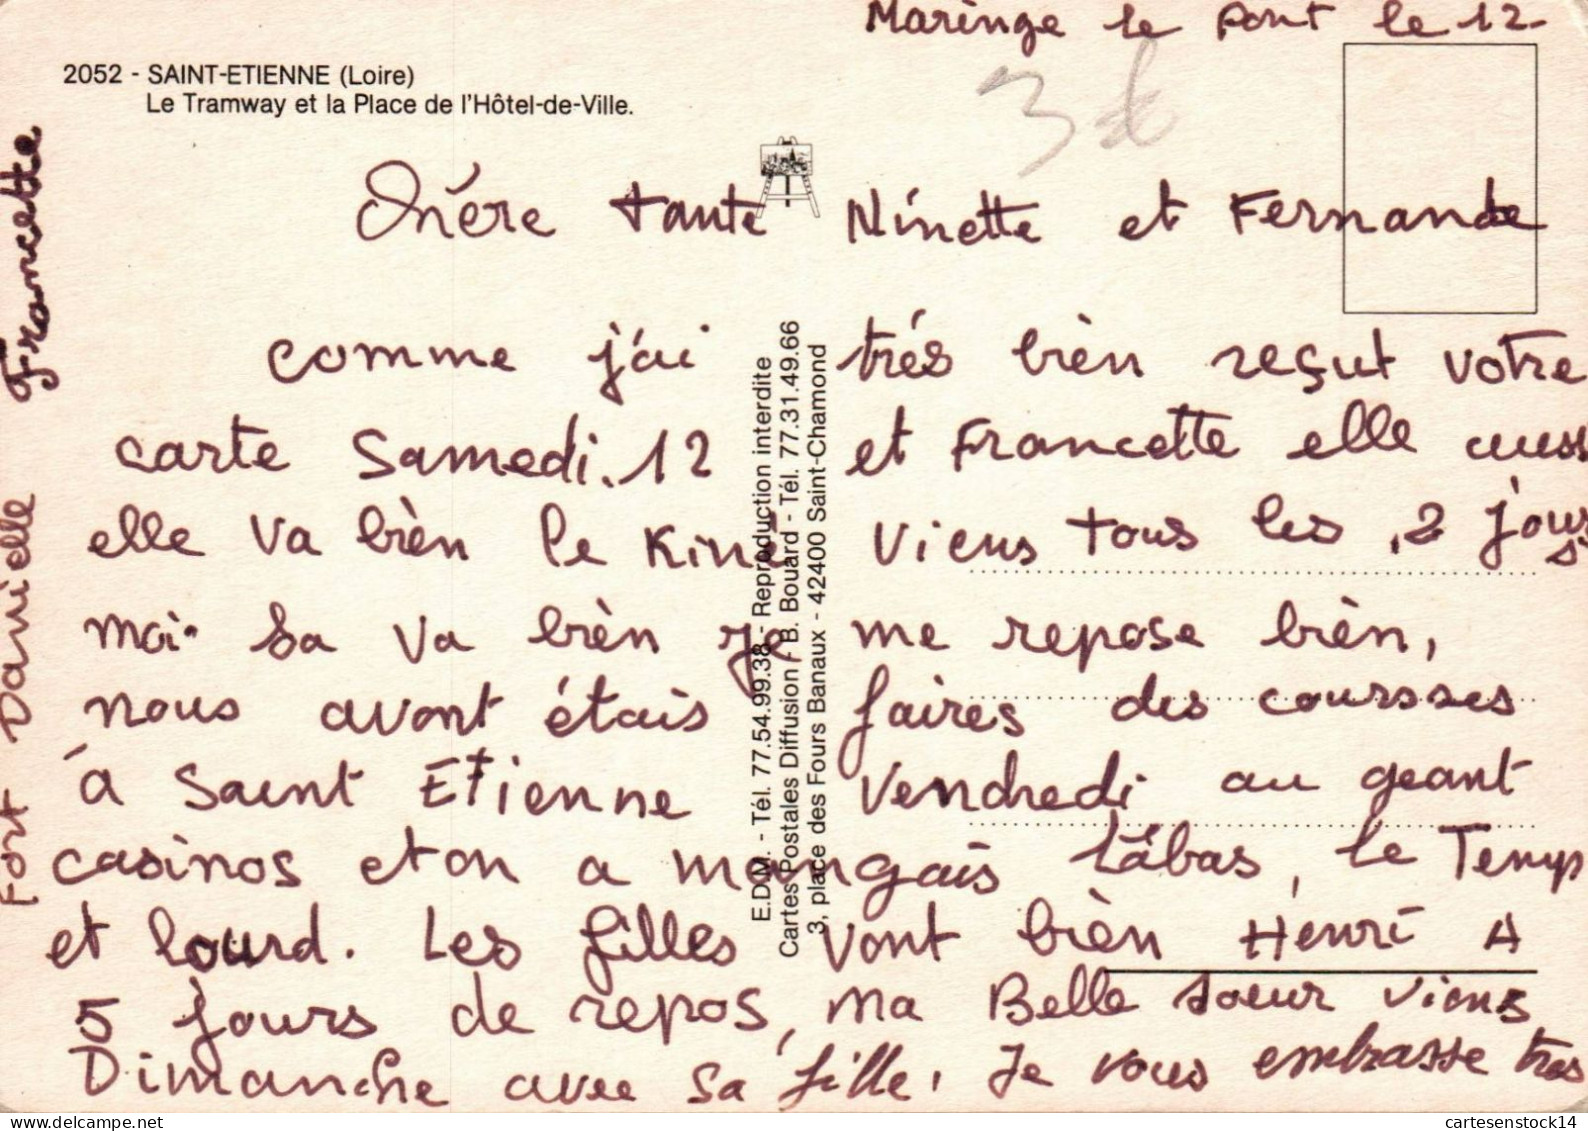 Maringe le Pont le 12-
2052 - SAINT-ETIENNE (Loire)
Le Tramway et la Place de l'Hôtel-de-Ville.
3 €
Chére tante Ninette et Fernande
comme j'ai trés bièn reçut votre
carte Samedi. 12 et Francette elle auss
elle va bièn le Kiné viens tous les 2 jours
moi sa va bièn je me repose bièn,
nous avont étais faires des coursses
à Saint Etienne Vendredi au geant
casinos et on a mangais Làbas, le Temps
et lourd. Les filles vont bièn Henri A
5 jours de repos, ma Belle soeur viens
Dimanche avec sa fille, Je vous embrasse tres
Fort Danielle Francette
E.D.M. - Tél. 77.54.99.38 - Reproduction interdite
Cartes Postales Diffusion - B. Bouard - Tél. 77.31.49.66
3, place des Fours Banaux - 42400 Saint-Chamond
cartesenstock14